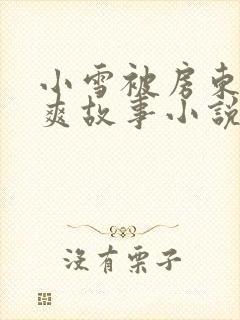 小雪被房东
爽故事小說
没有栗子